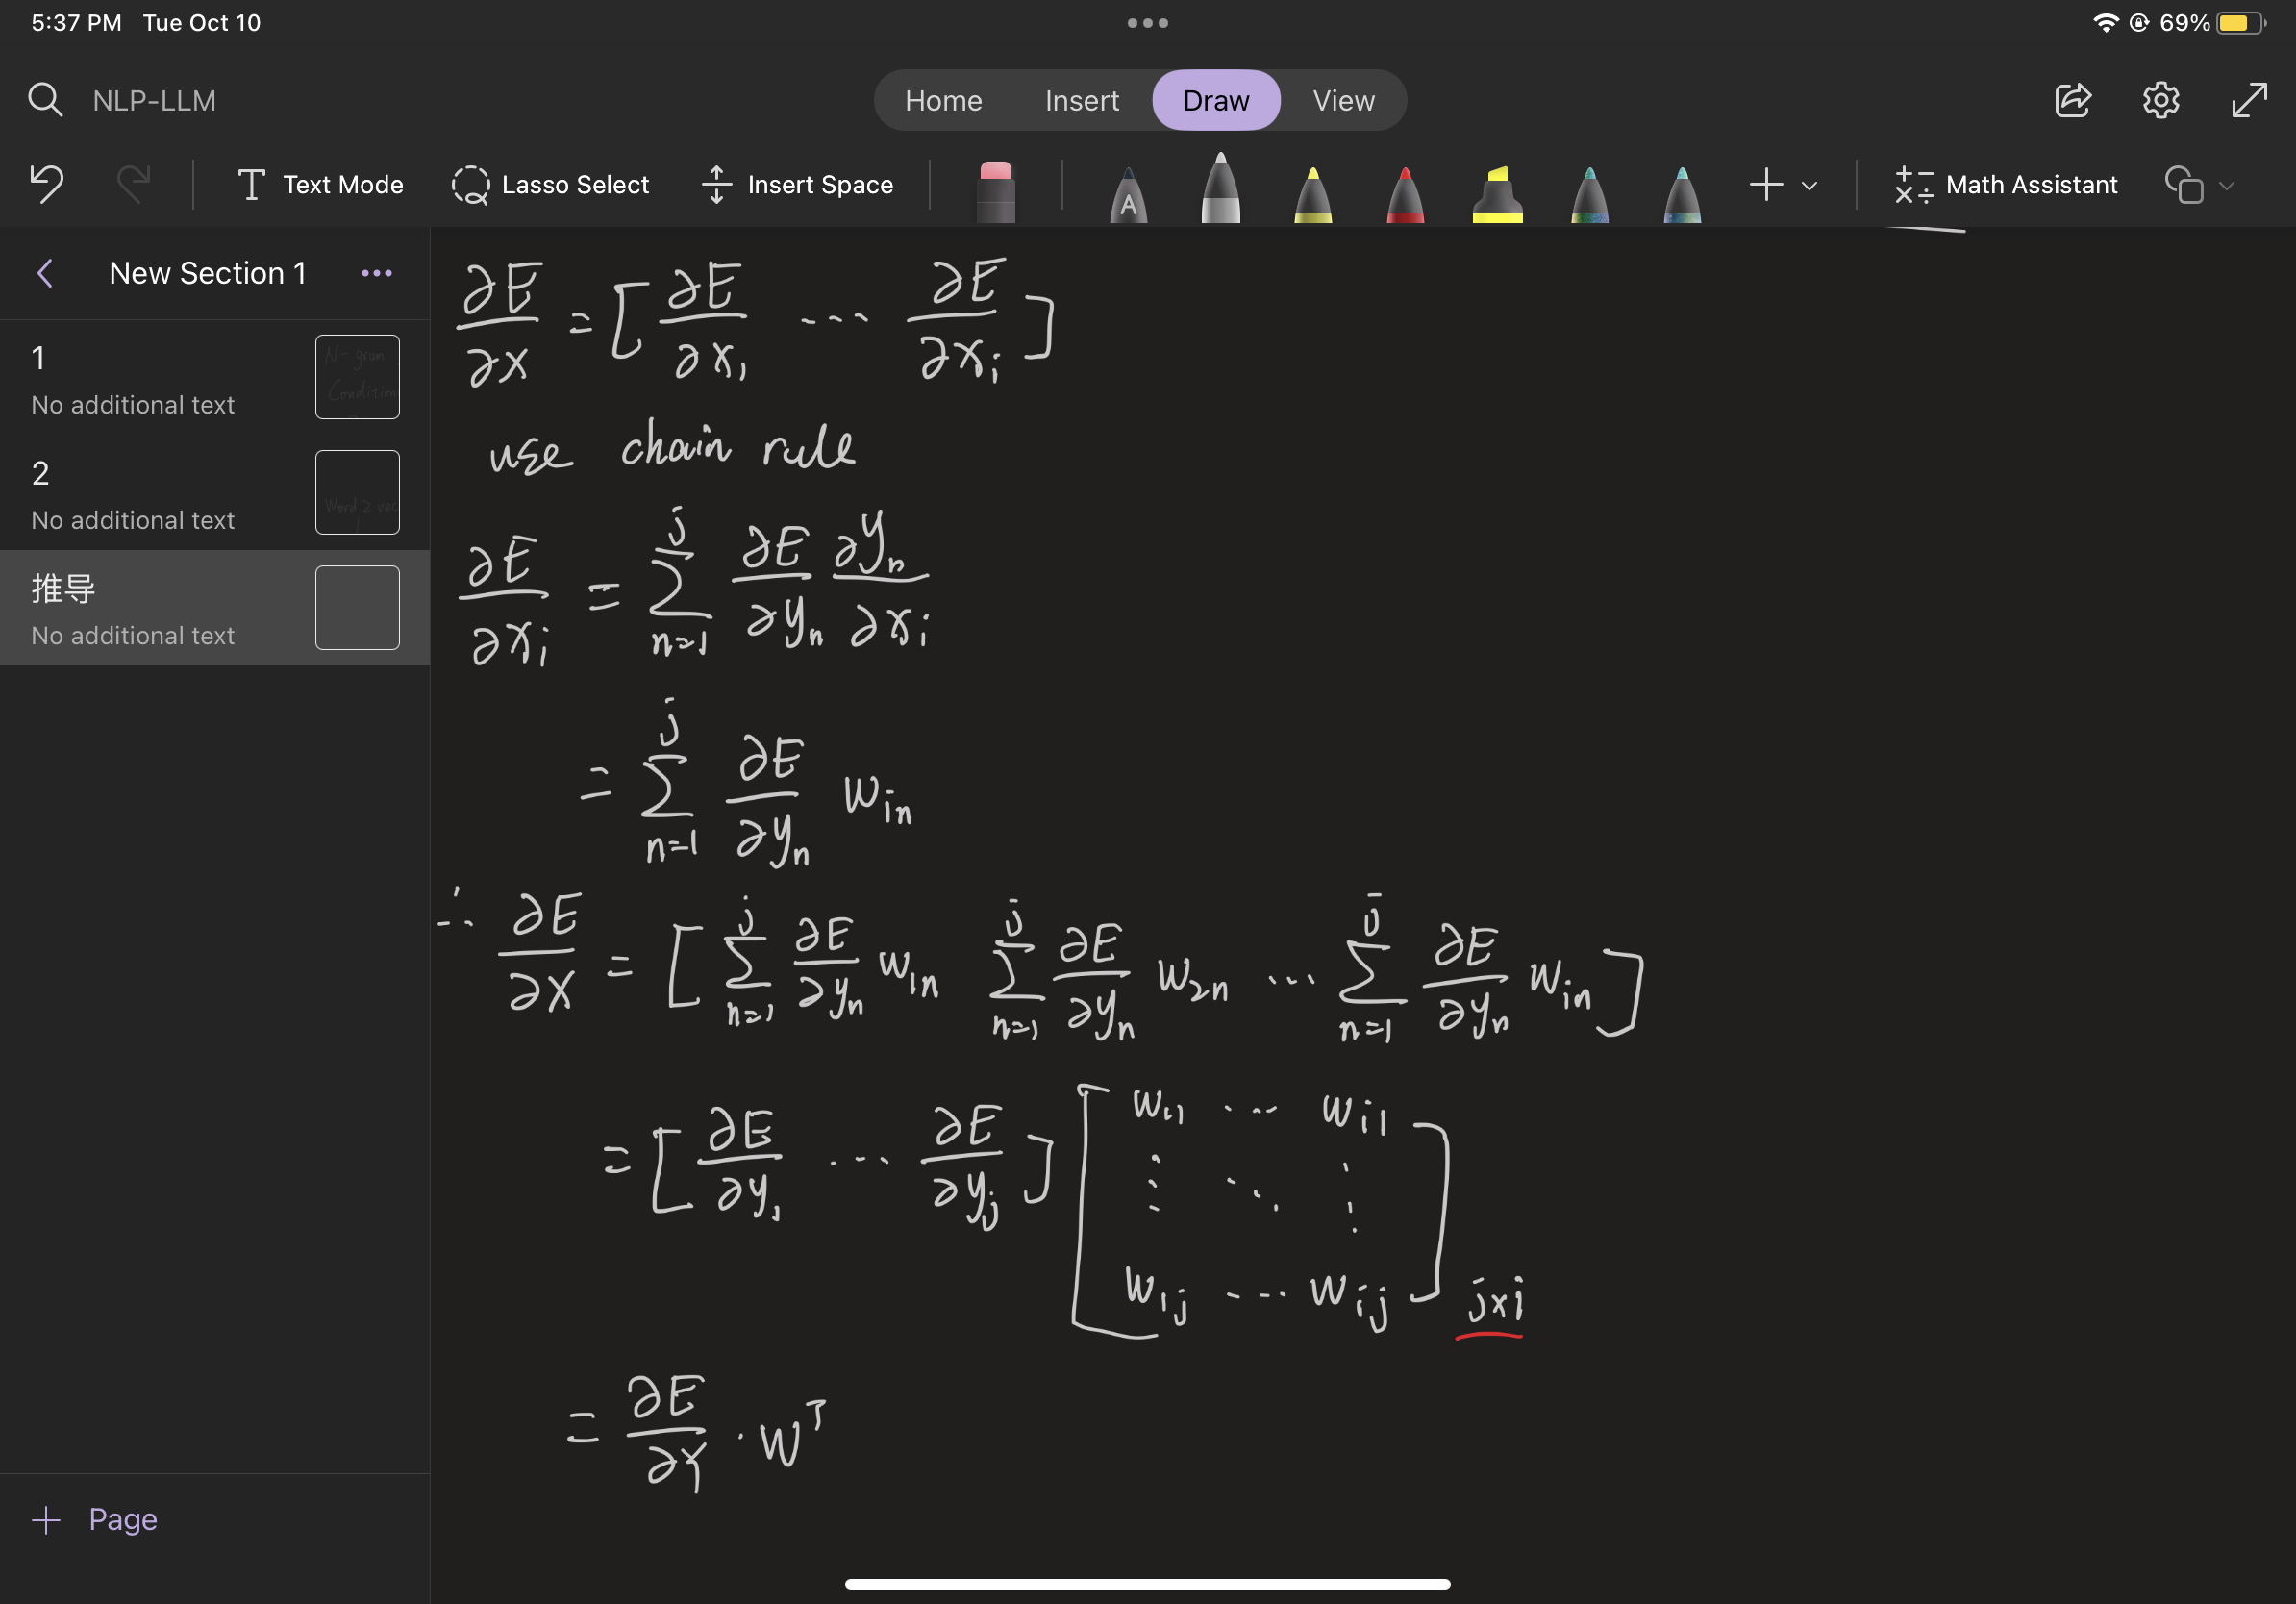 5:37 PM Tue Oct 10
69%
NLP-LLM
Home Insert Draw View
Text Mode Lasso Select Insert Space A Math Assistant
New Section 1
1
No additional text
N-gram
Condition
2
No additional text
Word 2 vec
推导
No additional text
Page
∂E/∂x = [∂E/∂x₁ ... ∂E/∂xᵢ]
use chain rule
∂E/∂xᵢ = Σ_{n=1}^{j} ∂E/∂yₙ ∂yₙ/∂xᵢ
= Σ_{n=1}^{j} ∂E/∂yₙ w_{in}
∴ ∂E/∂X = [Σ_{n=1}^{j} ∂E/∂yₙ w_{1n} Σ_{n=1}^{j} ∂E/∂yₙ w_{2n} ... Σ_{n=1}^{j} ∂E/∂yₙ w_{in}]
= [∂E/∂y₁ ... ∂E/∂yⱼ] [w₁₁ ... w_{i1} ⋮ ⋱ ⋮ w_{1j} ... w_{ij}]_{j×i}
= ∂E/∂Y · W^T